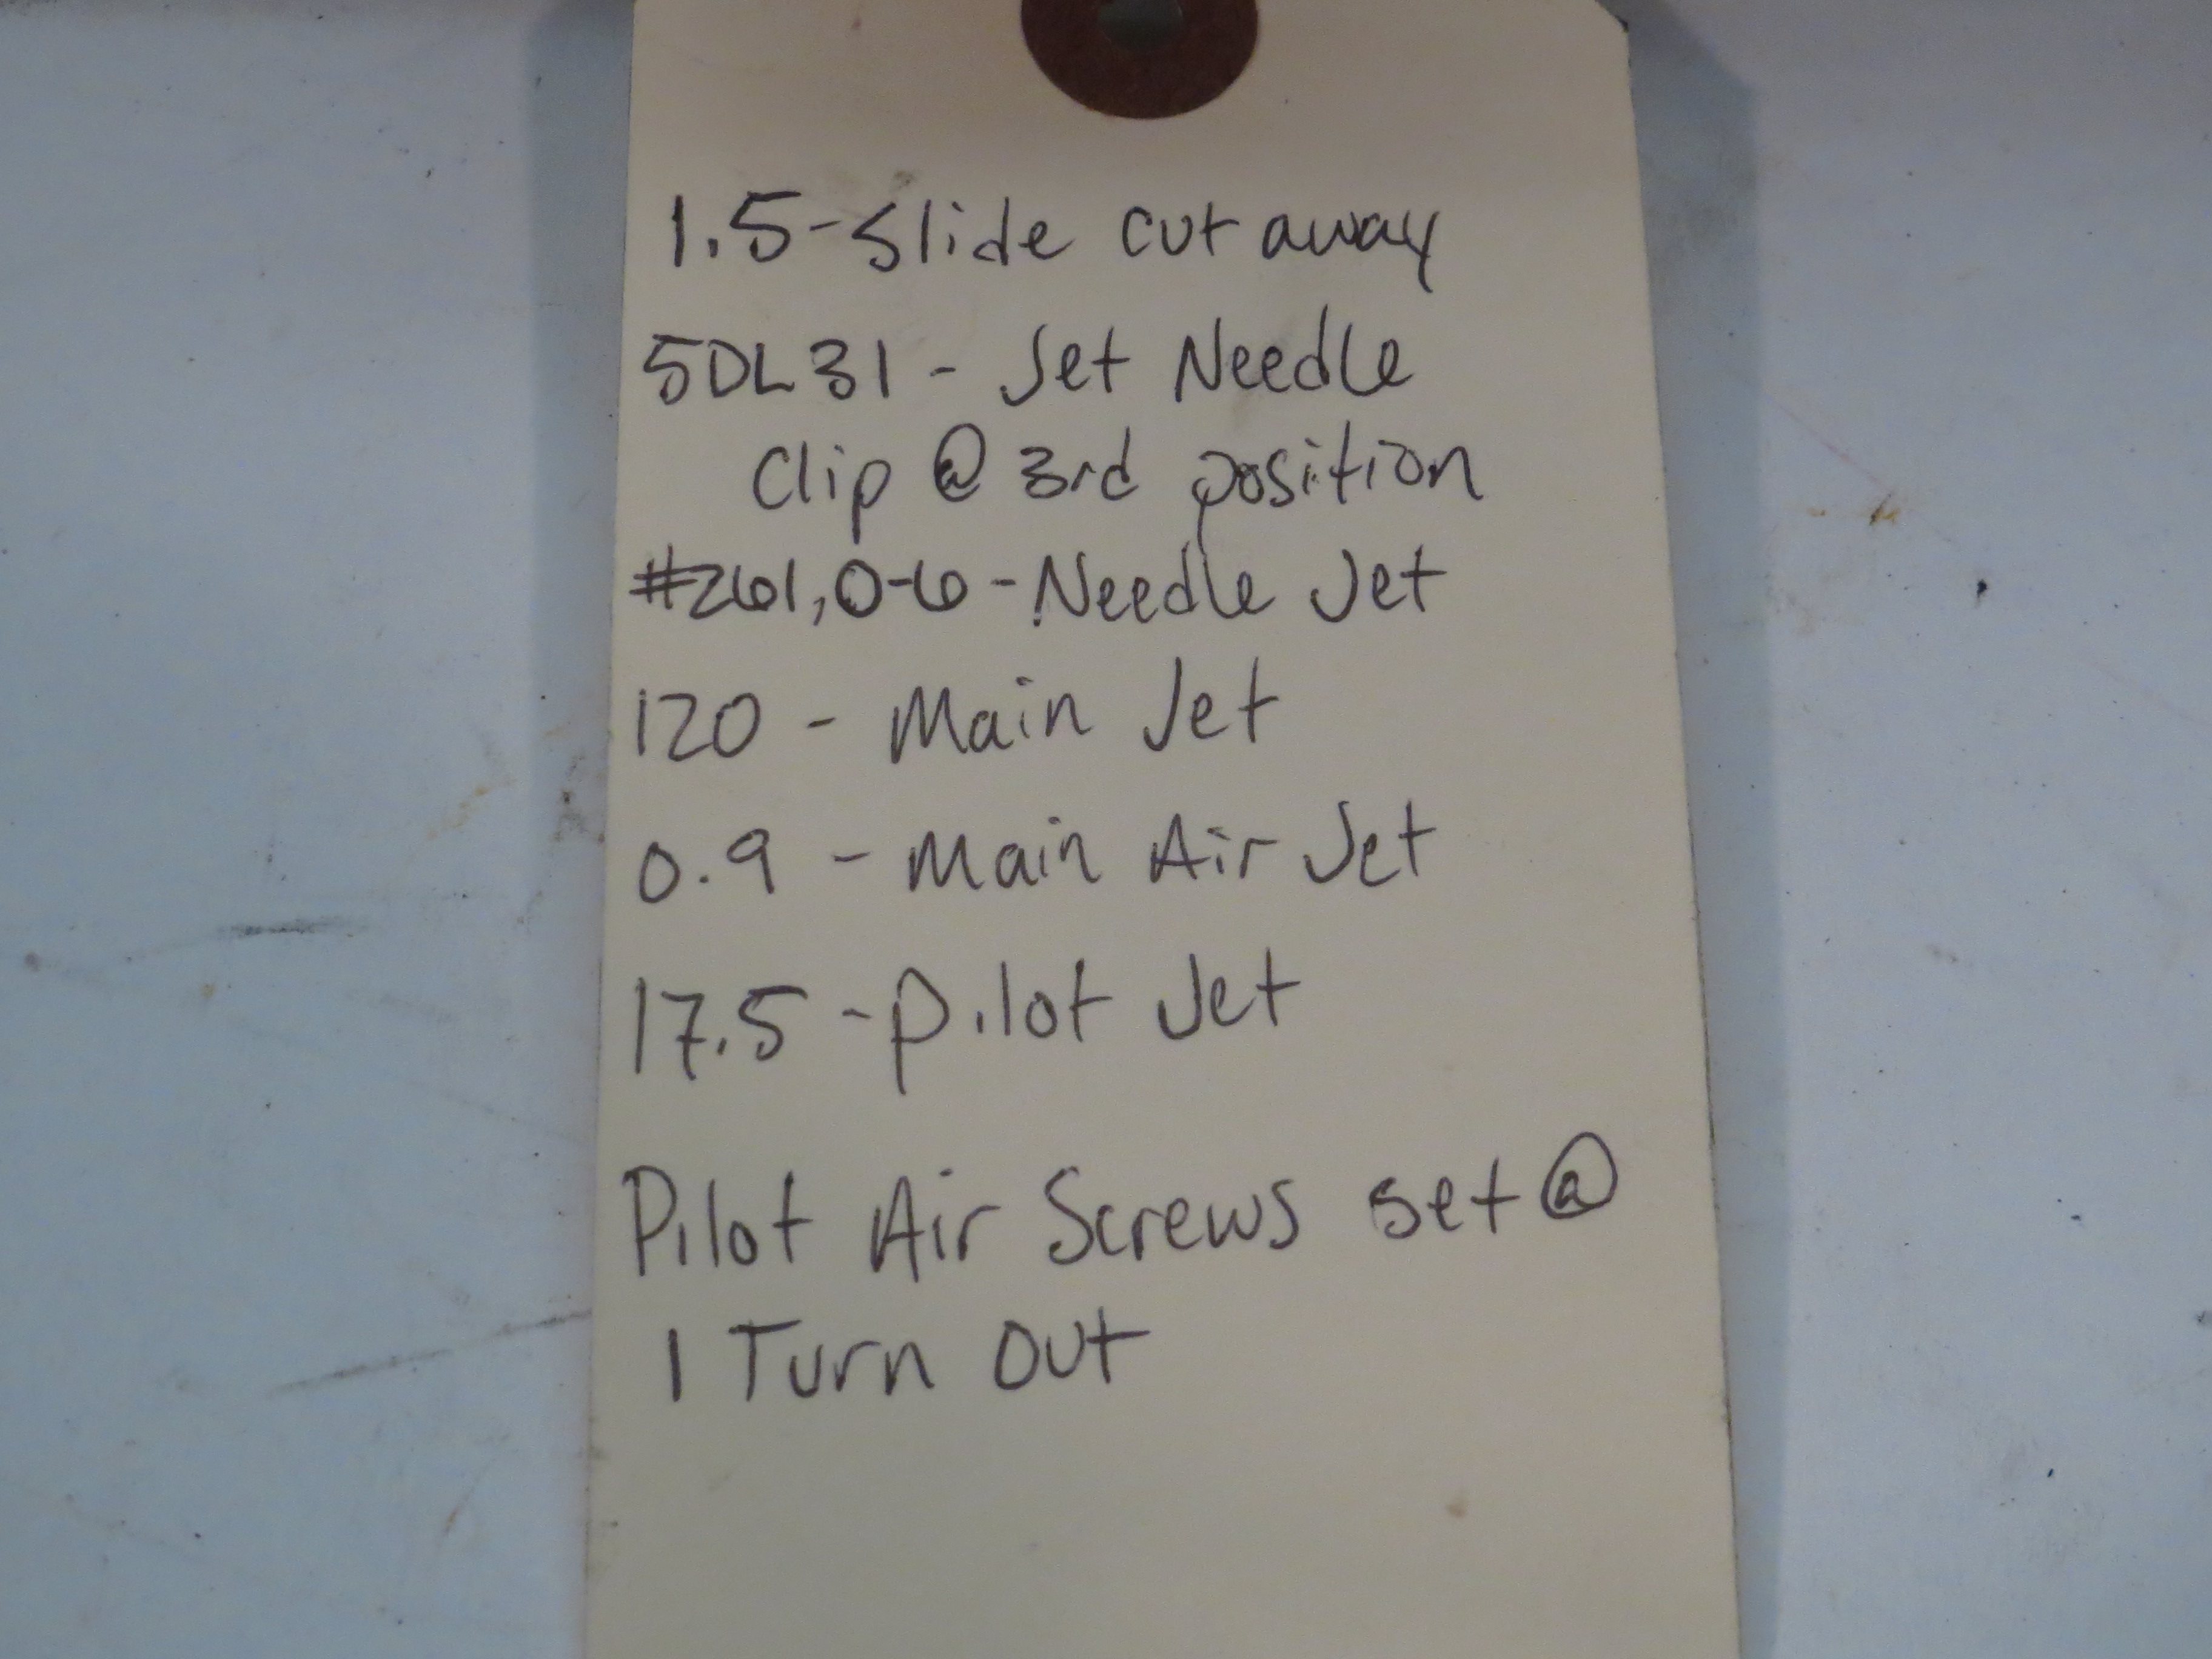 1.5-Slide cut away
5DL31 - Jet Needle
Clip @ 3rd position
#261,0-6-Needle Jet
120 - Main Jet
0.9 - Main Air Jet
17.5 - Pilot Jet
Pilot Air Screws set @
1 Turn Out